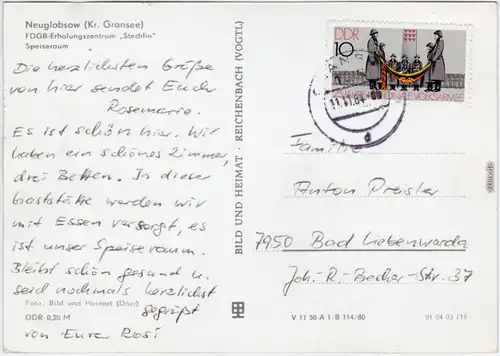 Neuglobsow (Kr. Gransee)
FDGB-Erholungszentrum „Stechlin"
Speiseraum
Die herzlichsten Grüße
von hier sendet Euch
Rosemarie.
Es ist schön hier. Wir
haben ein schönes Zimmer,
drei Betten. In dieser
Gaststätte werden wir
mit Essen versorgt, es
ist unser Speiseraum.
Bleibt schön gesund u.
seid nochmals herzlichst
gegrüßt
von Eurer Rosi
Foto: Bild und Heimat (Dorr)
DDR 0,20 M
BILD UND HEIMAT · REICHENBACH (VOGTL)
DDR
10
NATIONALE VOLKSARMEE
11.11.84
Familie
Anton Preisler
7950 Bad Liebenwerda
Joh.-R.-Becher-Str. 37
V 11 50 A 1/B 114/80
01 04 03 117